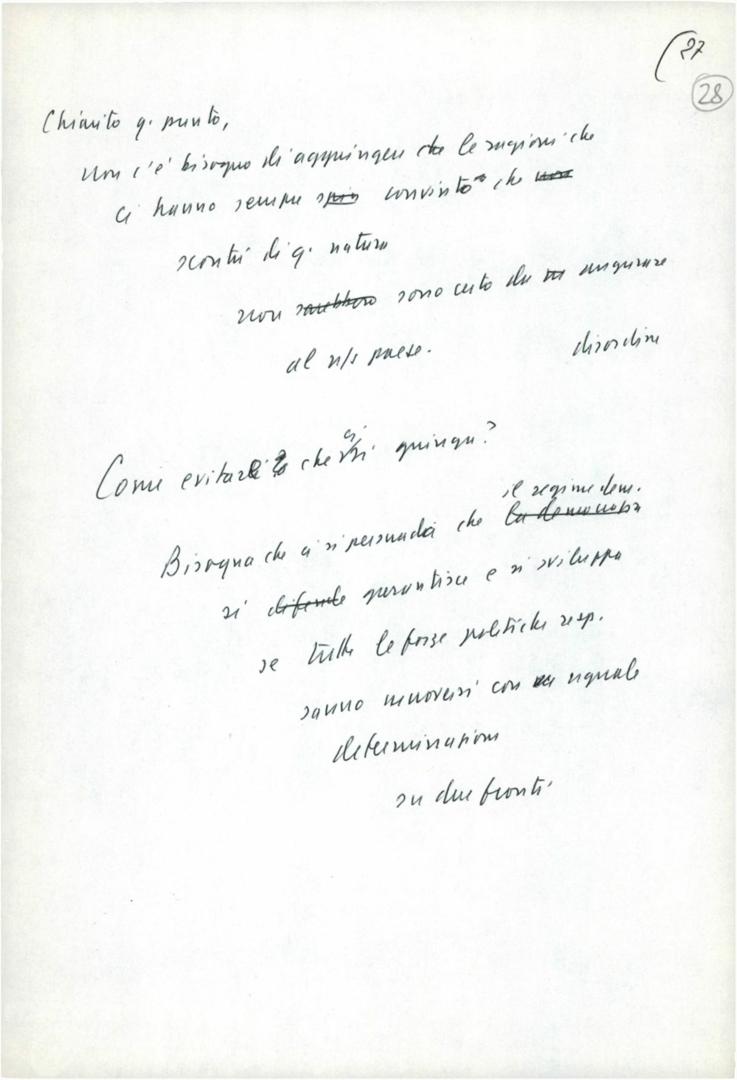 (27
28
Chiarito q. punto,
non c'è bisogno di aggiungere che le ragioni che
ci hanno sempre convinto che
scontri di q. natura
non sarebbero sono certo da augurare
al n/s paese.
disordine
Come evitare che ci si giunga?
il regime dem.
Bisogna che ci si persuada che la democrazia
si difende garantisce e si sviluppa
se tutte le forze politiche resp.
sanno muoversi con uguale
determinazione
su due fronti